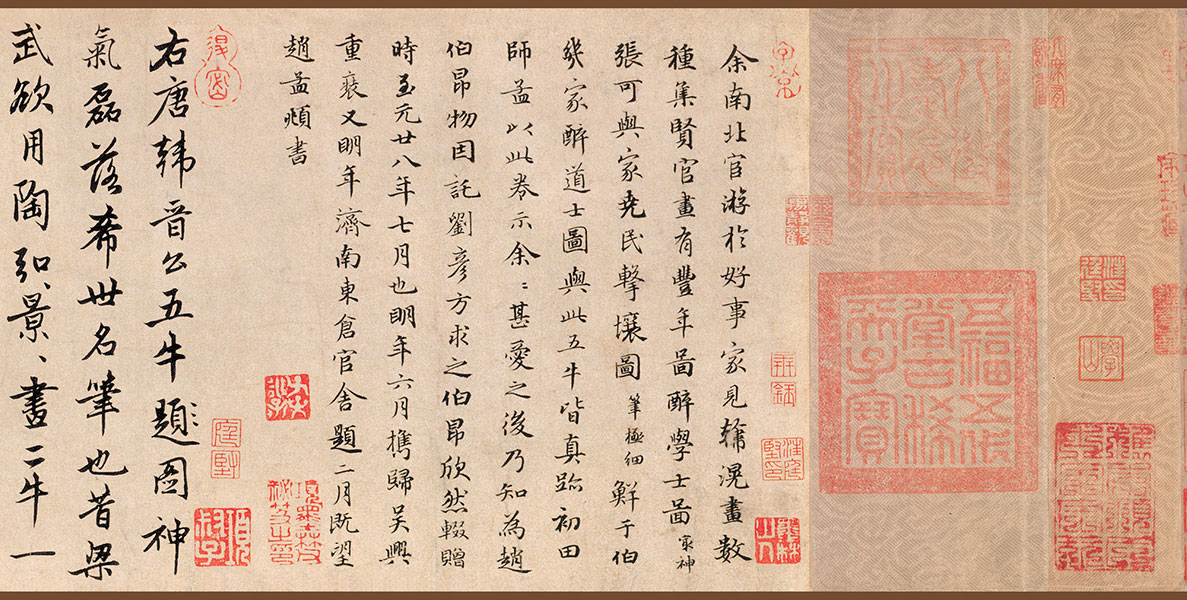 八徵耄念之寶
五福五代堂古稀天子寶
余南北宦游於好事家見韓滉畫數
種集賢官畫有豐年啚醉學士啚冣神
張可與家堯民擊壤圖筆極細鮮于伯
幾家醉道士圖與此五牛皆真跡初田
師孟以此卷示余〻甚愛之後乃知為趙
伯昂物因託劉彥方求之伯昂欣然輟贈
時至元廿八年七月也明年六月攜歸吳興
重裝又明年濟南東倉官舍題二月既望
趙孟頫書
墨林山人
項墨林父祕笈之印
項叔子
右唐韓晉公五牛題圖神
氣磊落希世名筆也昔梁
武欲用陶弘景〻畫二牛一